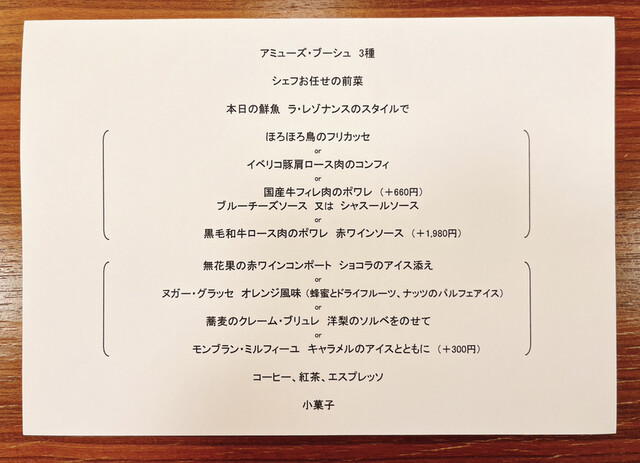 アミューズ・ブーシュ 3種
シェフお任せの前菜
本日の鮮魚 ラ・レゾナンスのスタイルで
ほろほろ鳥のフリカッセ
or
イベリコ豚肩ロース肉のコンフィ
or
国産牛フィレ肉のポワレ (+660円)
ブルーチーズソース 又は シャスールソース
or
黒毛和牛ロース肉のポワレ 赤ワインソース (+1,980円)
無花果の赤ワインコンポート ショコラのアイス添え
or
ヌガー・グラッセ オレンジ風味 (蜂蜜とドライフルーツ、ナッツのパルフェアイス)
or
蕎麦のクレーム・ブリュレ 洋梨のソルベをのせて
or
モンブラン・ミルフィーユ キャラメルのアイスとともに (+300円)
コーヒー、紅茶、エスプレッソ
小菓子